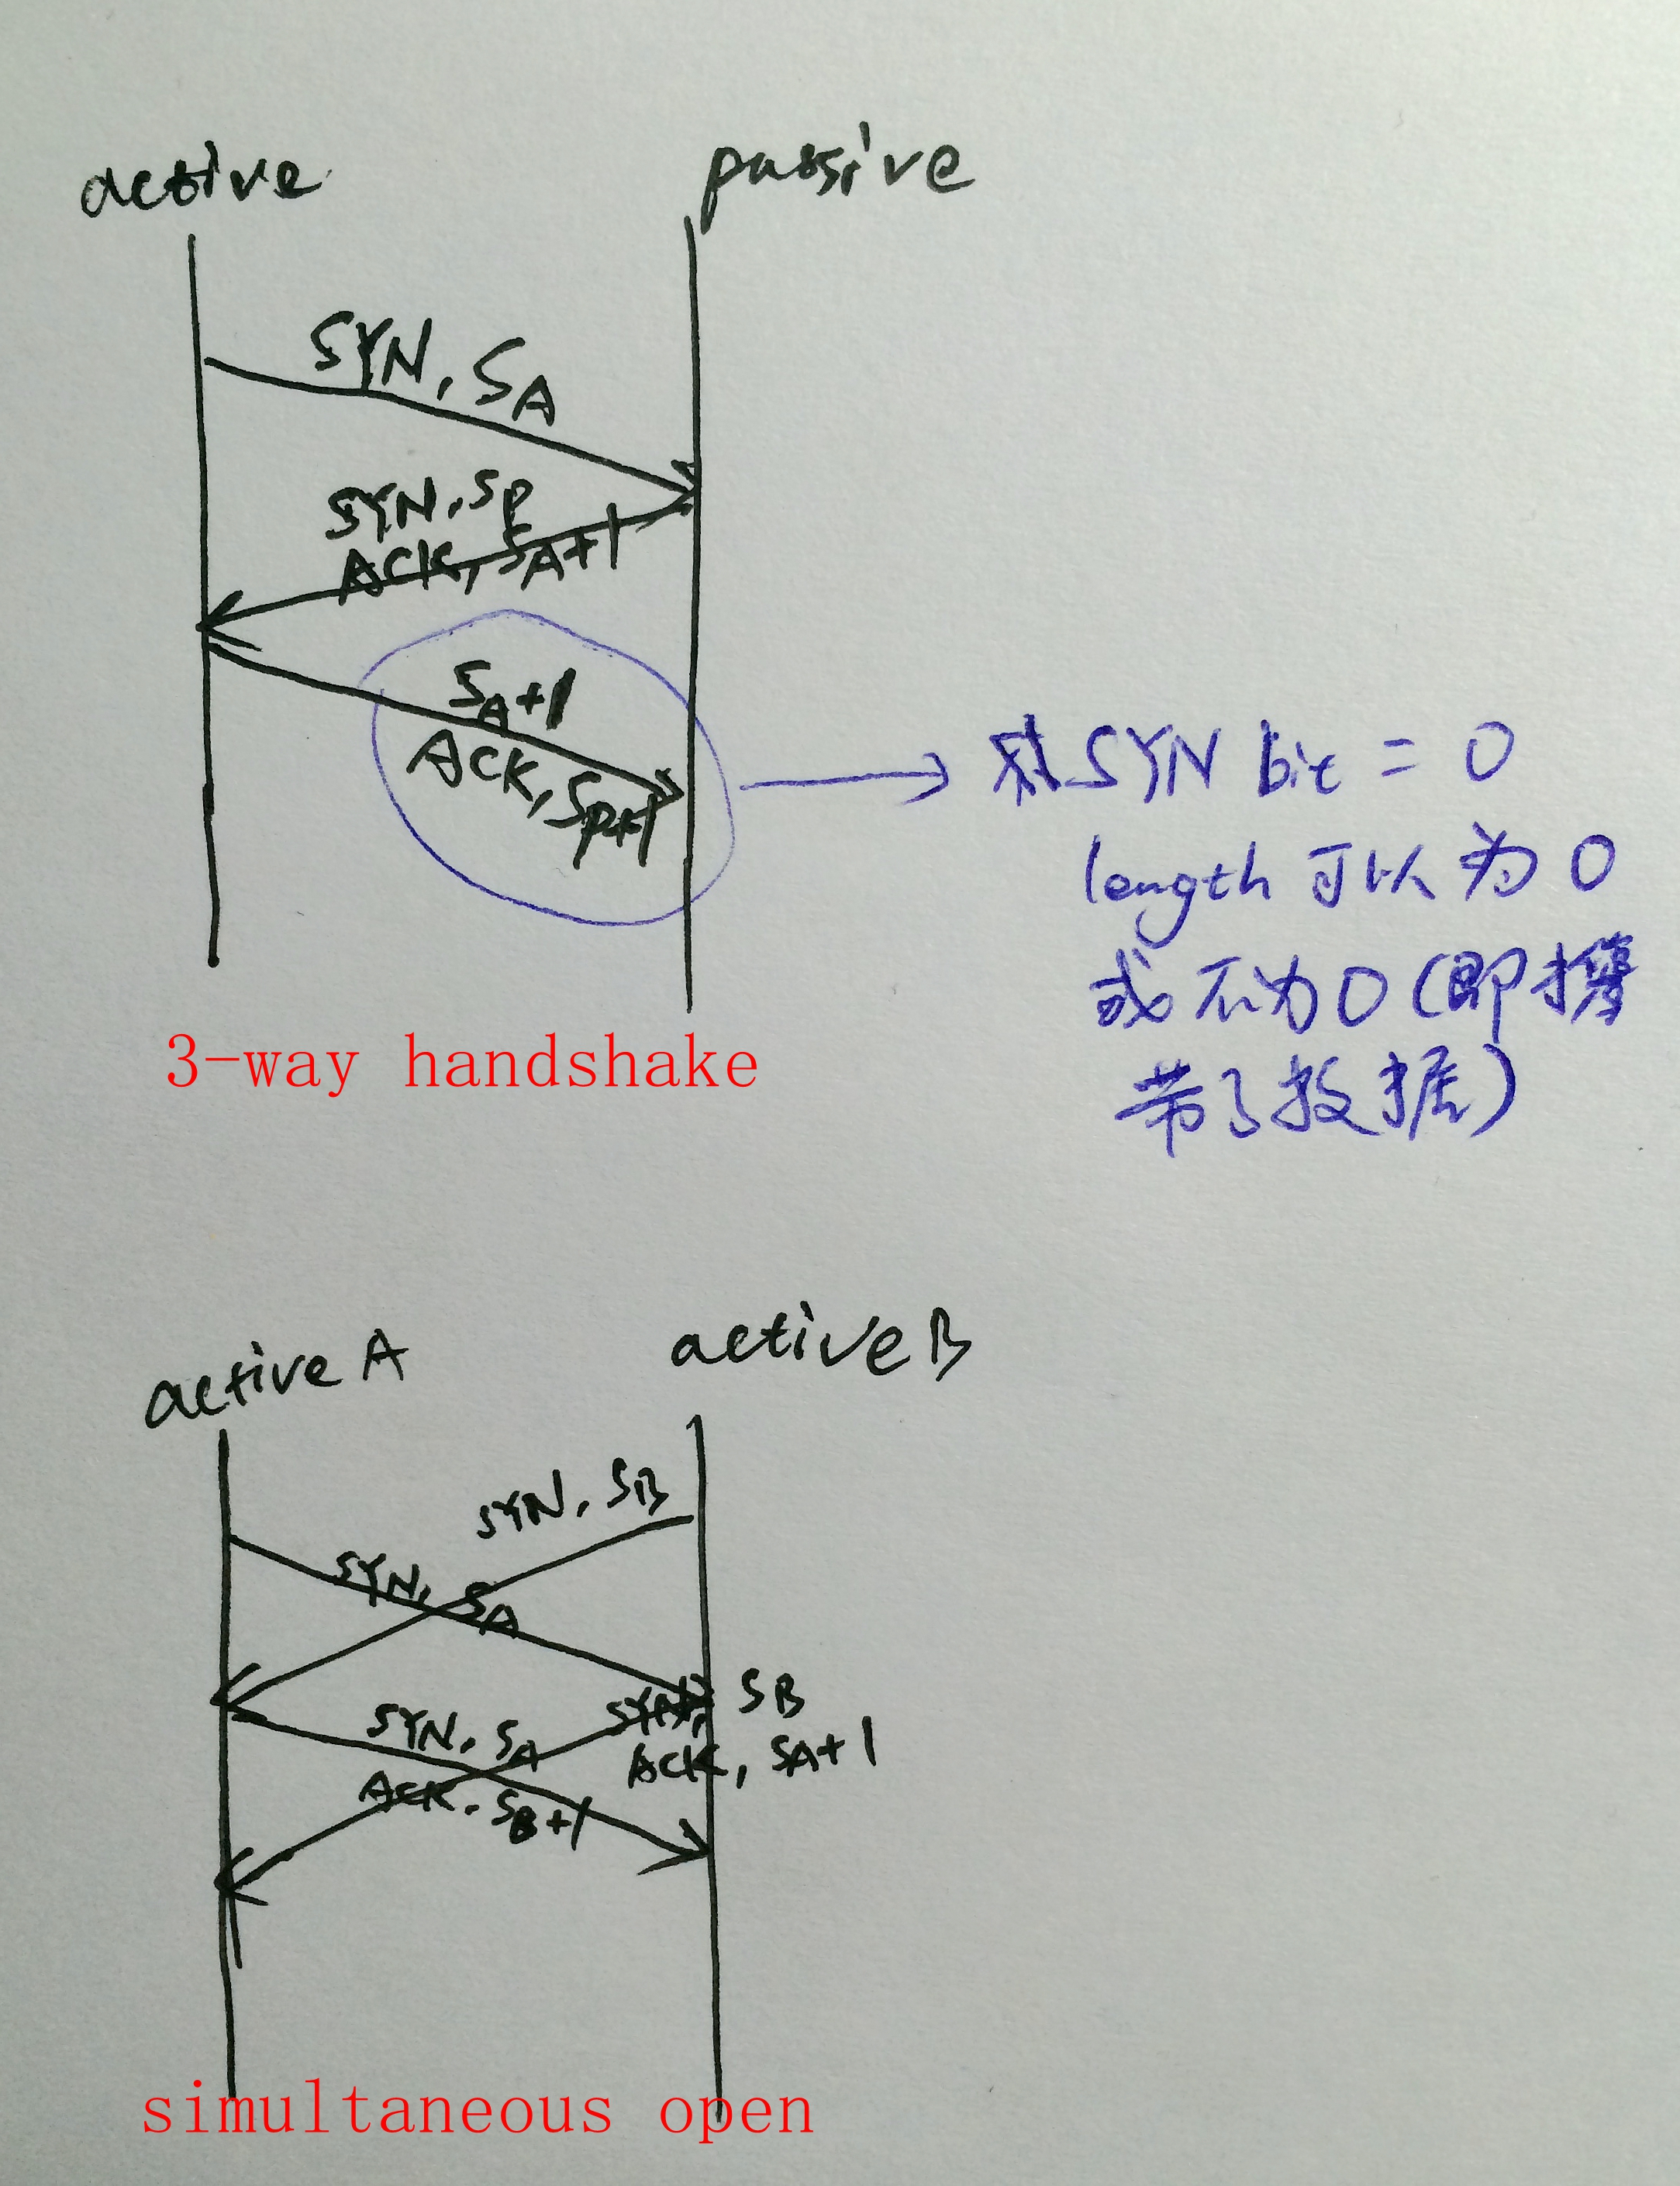 active
passive
SYN, SA
SYN, SP
ACK, SA+1
SA+1
ACK, SP+1
SYN bit = 0
length 可以为 0
或不为 0 (即携
带了数据)
3-way handshake
active A
active B
SYN, SB
SYN, SA
SYN, SB
ACK, SA+1
SYN, SA
ACK, SB+1
simultaneous open